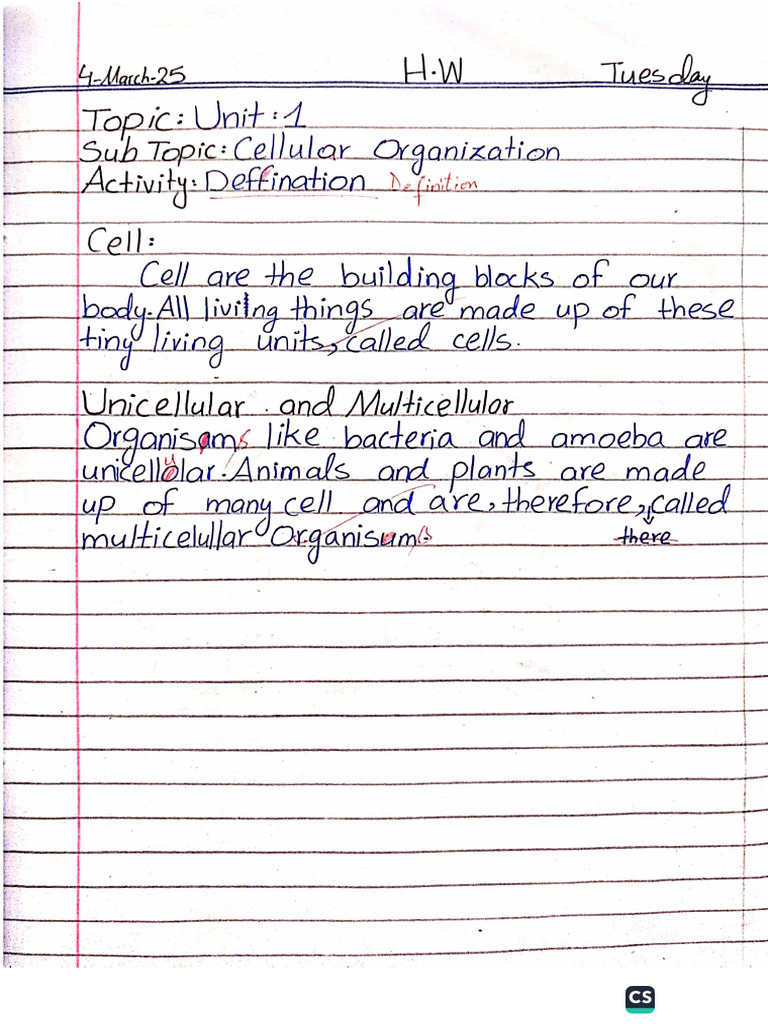 4-March-25 H.W Tuesday
Topic: Unit: 1
Sub Topic: Cellular Organization
Activity: Deffination Definition
Cell:
Cell are the building blocks of our
body. All living things are made up of these
tiny living units, called cells.
Unicellular and Multicellulor
Organisams like bacteria and amoeba are
unicellular. Animals and plants are made
up of many cell and are, therefore, called
multicelullar Organisums
there
CS